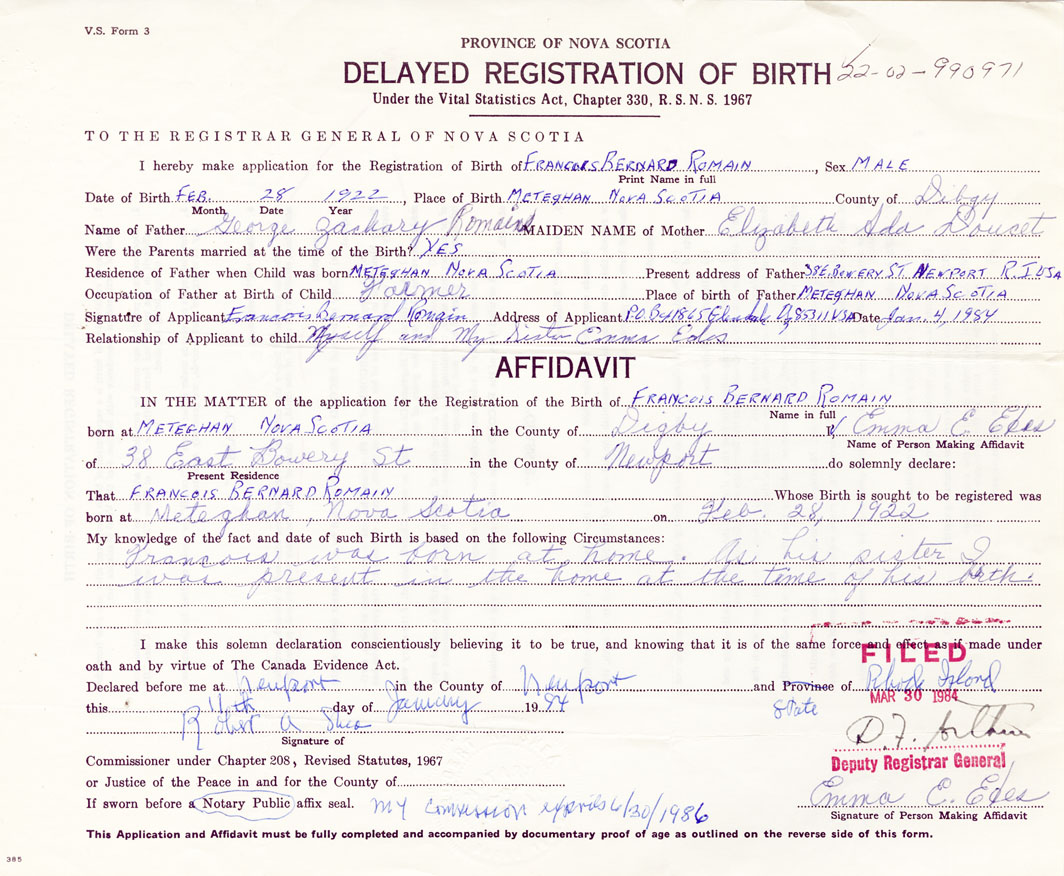 V.S. Form 3
PROVINCE OF NOVA SCOTIA
DELAYED REGISTRATION OF BIRTH 22-02-990971
Under the Vital Statistics Act, Chapter 330, R. S. N. S. 1967
TO THE REGISTRAR GENERAL OF NOVA SCOTIA
I hereby make application for the Registration of Birth of FRANCOIS BERNARD ROMAIN, Sex MALE
Print Name in full
Date of Birth FEB. 28 1922, Place of Birth METEGHAN NOVA SCOTIA County of Dibgy
Month Date Year
Name of Father George Zachary Romain MAIDEN NAME of Mother Elizabeth Ada Doucet
Were the Parents married at the time of the Birth? YES
Residence of Father when Child was born METEGHAN NOVA SCOTIA Present address of Father 38 E. BOWERY ST. NEWPORT R.I USA
Occupation of Father at Birth of Child Farmer Place of birth of Father METEGHAN NOVA SCOTIA
Signature of Applicant Francois Bernard Address of Applicant P.O. Box 1865 85311 USA Date Jan. 4, 1984
Relationship of Applicant to child Myself and My Sister Emma Edes
AFFIDAVIT
IN THE MATTER of the application for the Registration of the Birth of FRANCOIS BERNARD ROMAIN
Name in full
born at METEGHAN NOVA SCOTIA in the County of Digby Emma E. Edes
Name of Person Making Affidavit
of 38 East Bowery St in the County of Newport do solemnly declare:
Present Residence
That FRANCOIS BERNARD ROMAIN Whose Birth is sought to be registered was
born at Meteghan, Nova Scotia on Feb. 28, 1922
My knowledge of the fact and date of such Birth is based on the following Circumstances:
Francois was born at home. As his sister I
was present in the home at the time of his birth.
I make this solemn declaration conscientiously believing it to be true, and knowing that it is of the same force and effect as if made under
FILED
oath and by virtue of The Canada Evidence Act.
Declared before me at Newport in the County of Newport and Province of Rhode Island
MAR 30 1984
this 16th day of January 1984 State
Robert A Shea
Signature of
D. F.
Commissioner under Chapter 208, Revised Statutes, 1967
Deputy Registrar General
or Justice of the Peace in and for the County of
Emma E. Edes
If sworn before a Notary Public affix seal. My commission expires 6/30/1986
Signature of Person Making Affidavit
This Application and Affidavit must be fully completed and accompanied by documentary proof of age as outlined on the reverse side of this form.
385